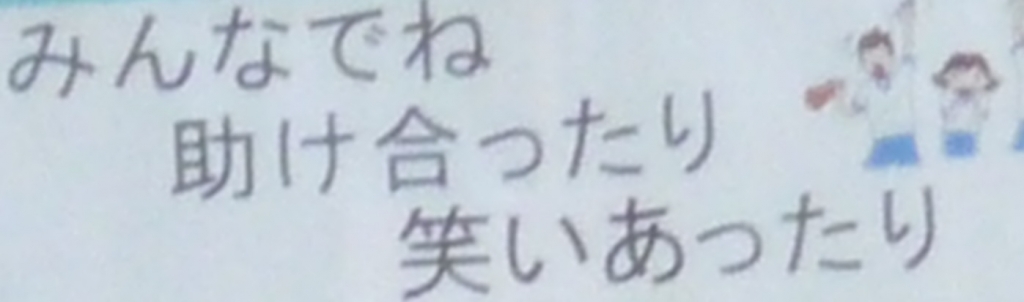 みんなでね
助け合ったり
笑いあったり